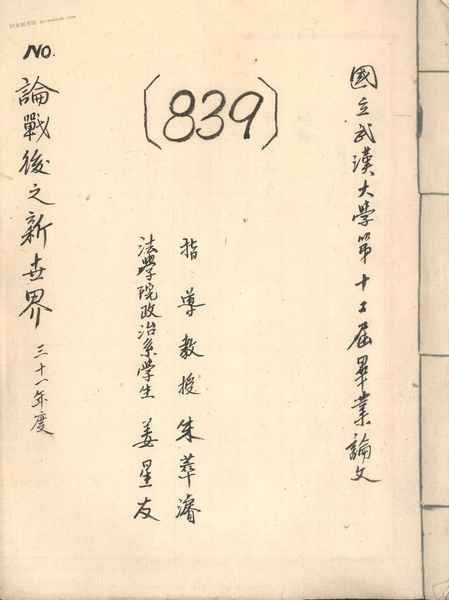 國立武漢大學第十二屆畢業論文
(839)
指導教授 朱萃濬
法學院政治系學生 姜星友
NO.
論戰後之新世界 三十一年度